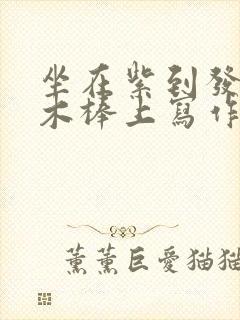 坐在紫到發
木棒上寫作
薰薰巨愛猫猫